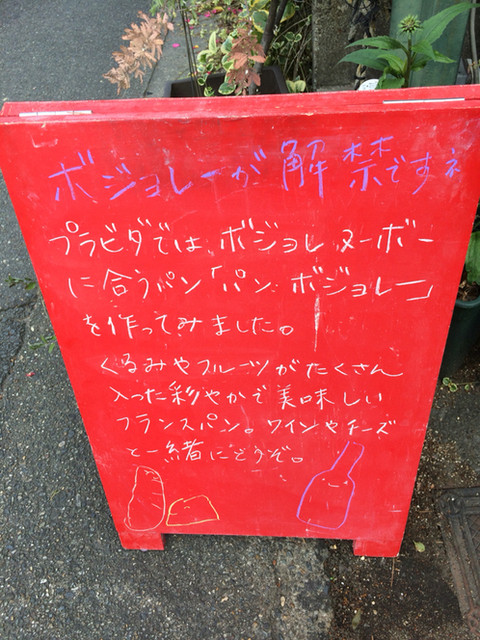 ボジョレーが解禁ですネ
プラビダでは ボジョレ ヌーボー
に合うパン「パン ボジョレー」
を作ってみました。
くるみやフルーツがたくさん
入った彩やかで美味しい
フランスパン。ワインやチーズ
と一緒にどうぞ。